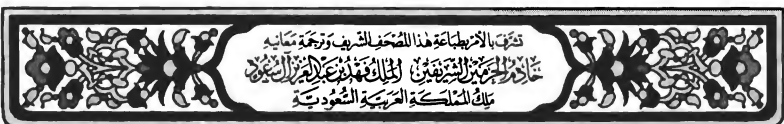 تشرف بالأمر بطباعة هذا المصحف الشريف وترجمة معانيه
خادم الحرمين الشريفين الملك فهد بن عبد العزيز آل سعود
ملك المملكة العربية السعودية